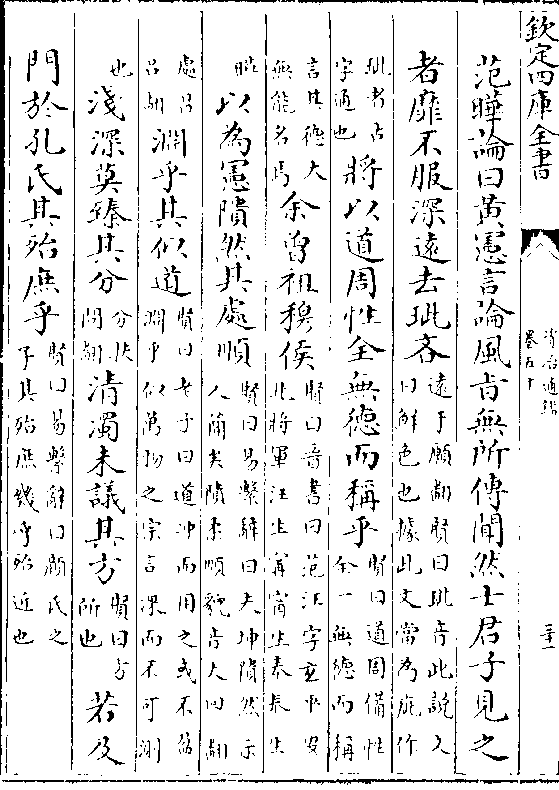 欽定四庫全書
資治通鑑
卷五十
范曄論曰黃憲言論風旨無所傳聞然士君子見之
者靡不服深遠去玼吝
遠于願翻賢曰玼音此説文
曰鮮色也據此文當為疵作
玼者古
字通也
將以道周性全無德而稱乎
賢曰道周備性
全一無德而稱
言其德大
無能名焉
余曾祖穆侯
賢曰晉書曰范汪字玄平安
北將軍汪生甯甯生泰泰生
曄
以為憲隤然其處順
賢曰易繫辭曰夫坤隤然示
人簡矣隤柔順貌音大回翻
處昌
呂翻
淵乎其似道
賢曰老子曰道沖而用之或不盈
淵乎似萬物之宗言深而不可測
也
淺深莫臻其分
分扶
問翻
清濁未議其方
賢曰方
所也
若及
門於孔氏其殆庶乎
賢曰易繫辭曰顔氏之
子其殆庶幾乎殆近也